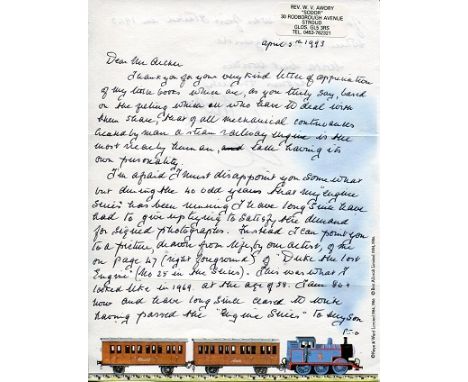 REV. W. V. AWDRY
"SODOR"
30 RODBOROUGH AVENUE
STROUD
GLOS. GL5 3RS
TEL. 0453-762321
April 5th 1993
Dear Mr
Thank you for your very kind letter of appreciation
of my little books which are, as you truly say, based
on the feeling which all who have to deal with
them share, that of all mechanical contrivances
created by man a steam railway engine is the
most nearly human, and each having its
own personality.
I'm afraid I must disappoint you somewhat
but during the 40 odd years that my "engine
series" has been running I have long since have
had to give up trying to satisfy the demand
for signed photographs. Instead I can point you
to a picture, drawn from life by our artist, of me
on page 47 (right foreground) of "Duke the lost
Engine" (No 25 in the series). This was what I
looked like in 1969 at the age of 58. I am 80+
now and have long since ceased to work
having passed the "Engine Series" to my Son
P.T.O